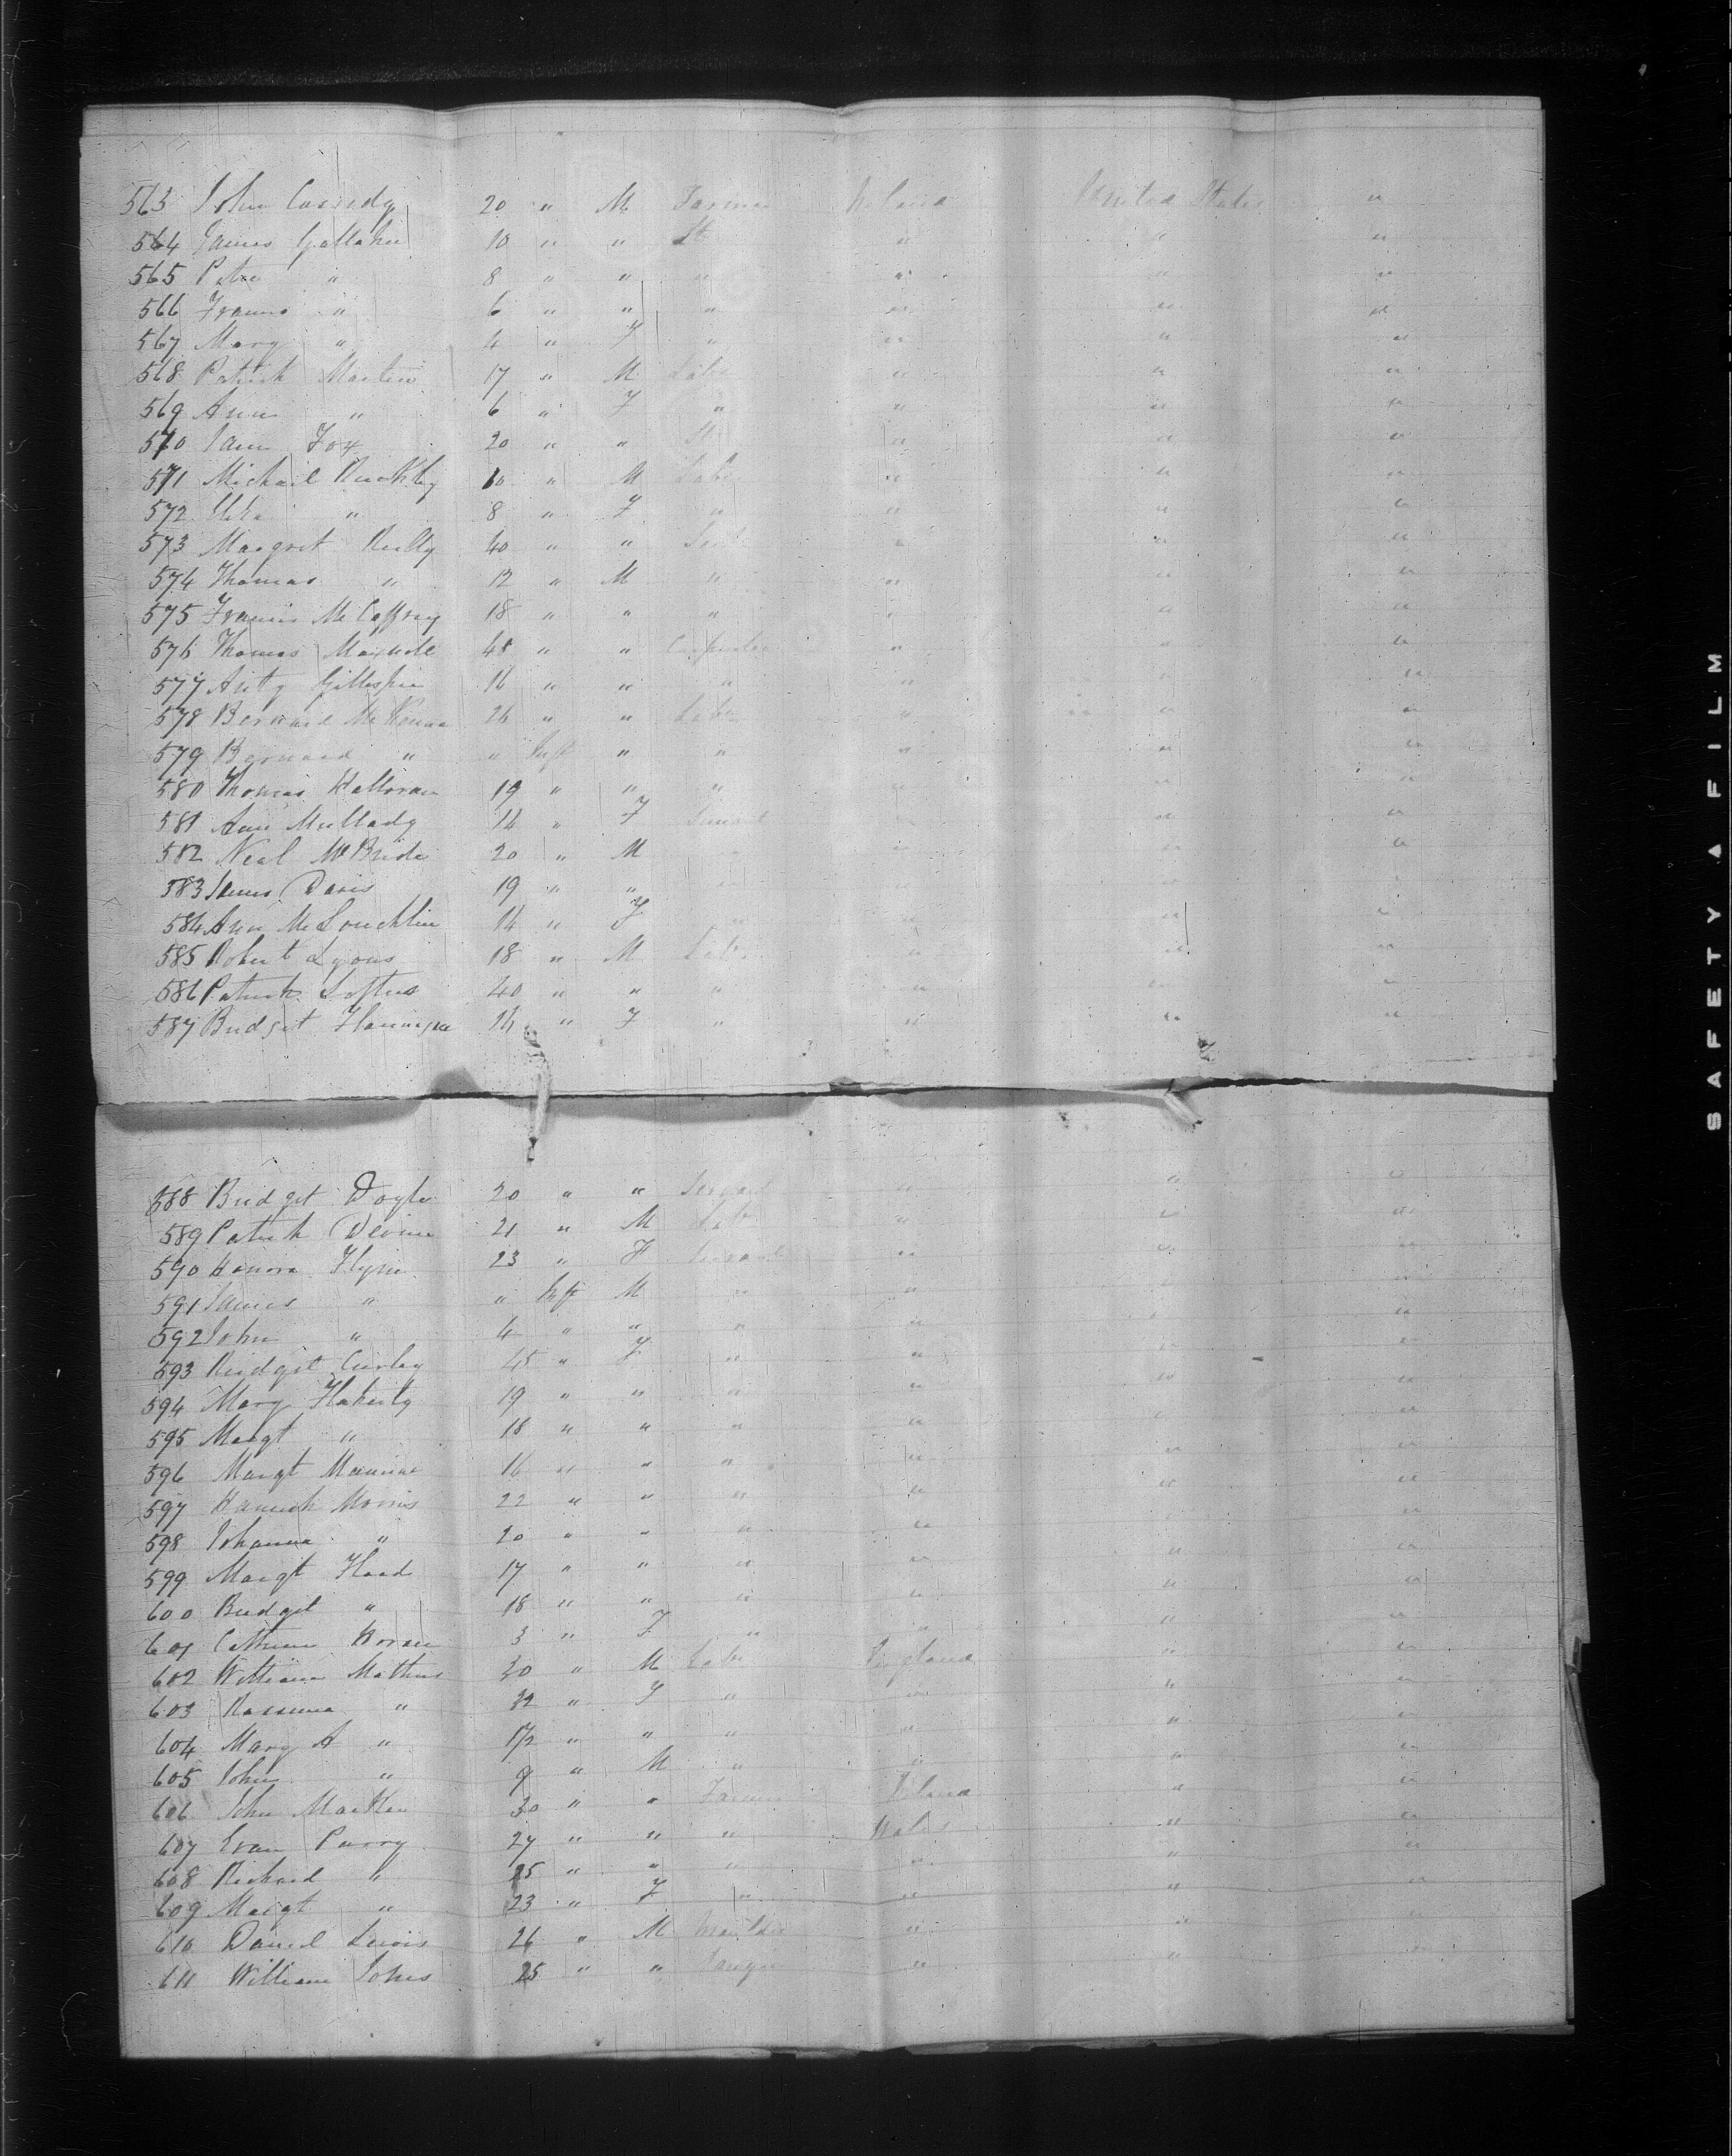 563 John Cassidy 20 " M Farmer Ireland United States "
564 James Gallaher 10 " " " " "
565 Peter " 8 " " " " " "
566 Francis " 6 " " " " " "
567 Mary " 4 " F " " " "
568 Patrick Martin 17 " M Labr " " "
569 Ann " 6 " F " " " "
570 Jane Fox 20 " " " " "
571 Michael Buckley 10 " M Labr " " "
572 8 " F " " " "
573 Margret Reilly 40 " " " " "
574 Thomas " 12 " M " " " "
575 Francis McCaffrey 18 " " " " " "
576 Thomas 45 " " Carpenter " " "
577 Anty Gillespie 16 " " " " " "
578 Bernard McKenna 26 " " Labr " " "
579 Bernard " " Inft " " " " "
580 Thomas Halloran 19 " " " " " "
581 Ann Mullady 14 " F Servant " " "
582 Neal McBride 20 " M " " " "
583 James Davis 19 " " " " " "
584 Ann McLouchlin 14 " F " " " "
585 Robert Lyons 18 " M Labr " " "
586 Patrick Loftus 40 " " " " " "
587 Bridget Flannigan 14 " F " " " "
588 Bridget Doyle 20 " " Servant " " "
589 Patrick Devine 21 " M Labr " " "
590 Honora Flynn 23 " F Servant " " "
591 James " " Inft M " " " "
592 John " 4 " " " " " "
593 Bridget Curley 45 " F " " " "
594 Mary Flaherty 19 " " " " " "
595 Margt " 18 " " " " " "
596 Margt 16 " " " " " "
597 Hannah Morris 22 " " " " " "
598 Johanna " 20 " " " " " "
599 Margt Flood 17 " " " " " "
600 Bridget " 18 " " " " " "
601 Cathrine Horan 3 " F " " " "
602 William Mathews 30 " M Labr England " "
603 " 32 " F " " " "
604 Mary A " 1/2 " " " " " "
605 John " 9 " M " " " "
606 John Macken 30 " " Farmer Ireland " "
607 Evan Parry 27 " " " Wales " "
608 Richard " 25 " " " " " "
609 Margt " 23 " F " " " "
610 Daniel Lewis 26 " M Moulder " " "
611 William Johns 25 " " Sawyer " " "
SAFETY ▲ FILM